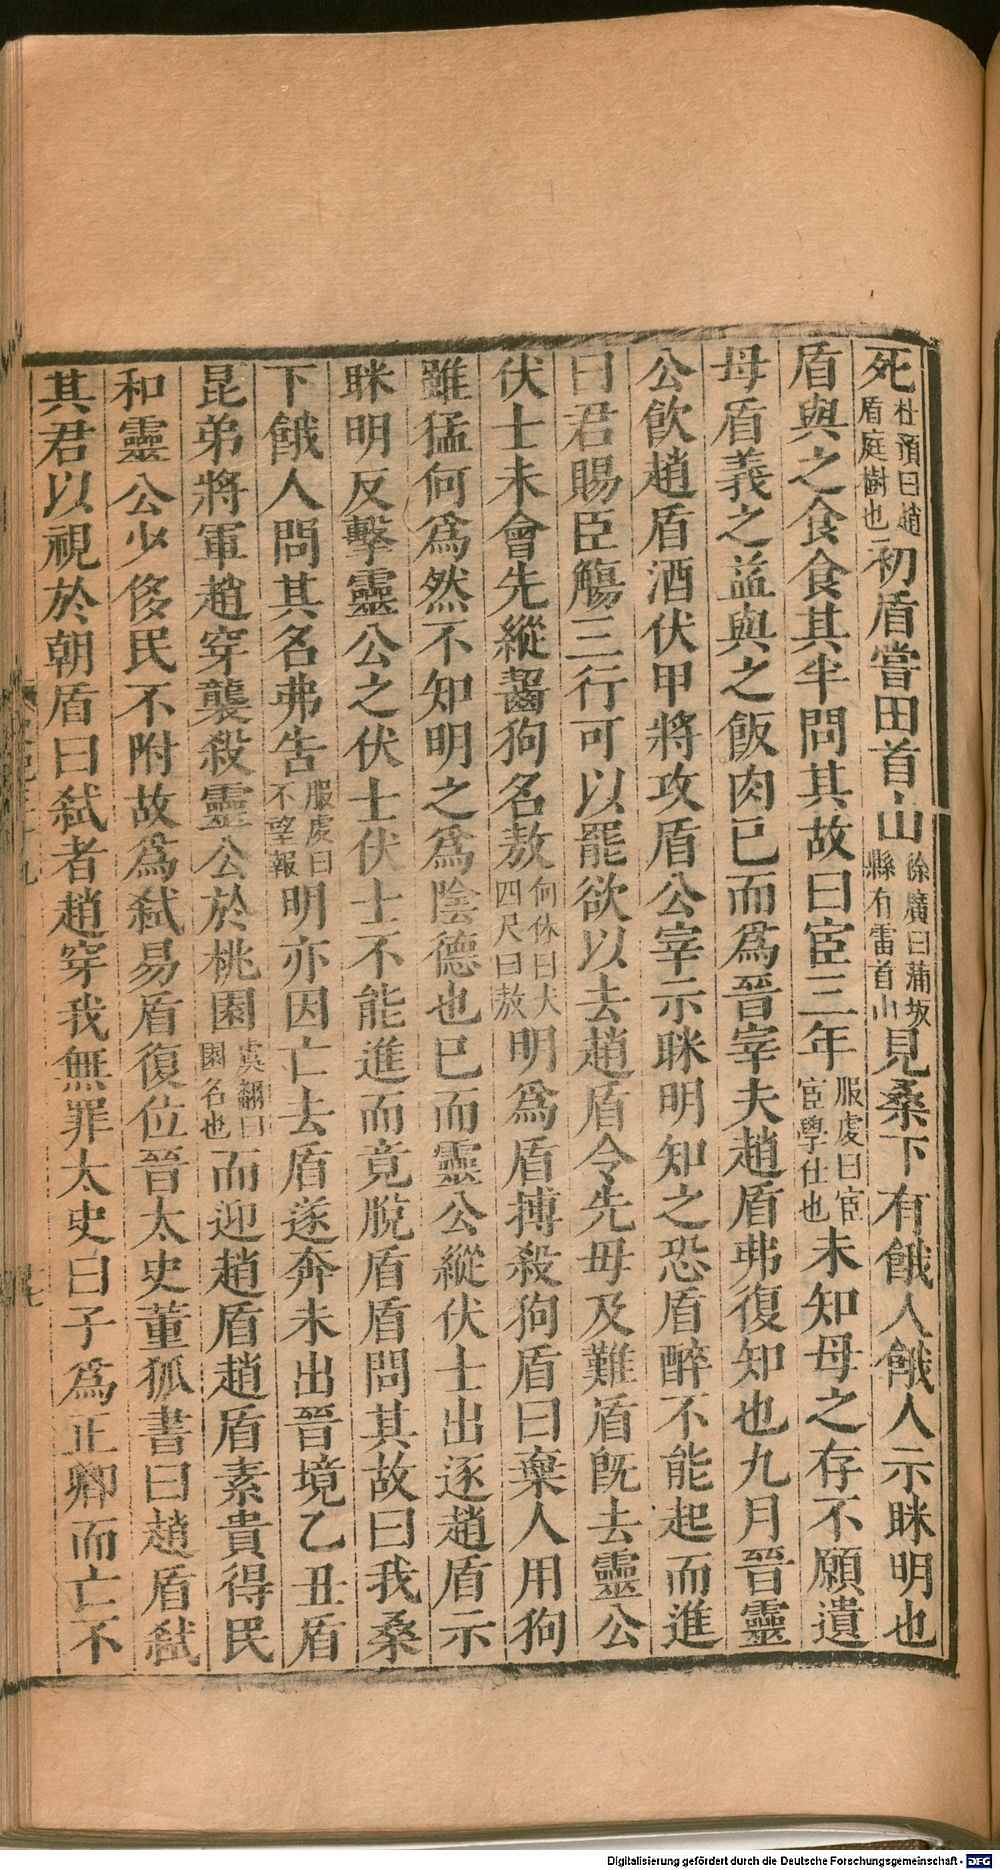 死杜預曰趙盾庭樹也初盾嘗田首山徐廣曰蒲坂縣有雷首山見桑下有餓人餓人示眯明也
盾與之食食其半問其故曰宦三年服虔曰宦宦學仕也未知母之存不願遺
母盾義之益與之飯肉已而爲晉宰夫趙盾弗復知也九月晉靈
公飲趙盾酒伏甲將攻盾公宰示眯明知之恐盾醉不能起而進
曰君賜臣觴三行可以罷欲以去趙盾令先毋及難盾旣去靈公
伏士未會先縱齧狗名敖何休曰犬四尺曰敖明爲盾搏殺狗盾曰棄人用狗
雖猛何爲然不知明之爲陰德也已而靈公縱伏士出逐趙盾示
眯明反擊靈公之伏士伏士不能進而竟脫盾盾問其故曰我桑
下餓人問其名弗告服虔曰不望報明亦因亡去盾遂奔未出晉境乙丑盾
昆弟將軍趙穿襲殺靈公於桃園虞翻曰園名也而迎趙盾趙盾素貴得民
和靈公少侈民不附故爲弑易盾復位晉太史董狐書曰趙盾弑
其君以視於朝盾曰弑者趙穿我無罪太史曰子爲正卿而亡不
Digitalisierung gefördert durch die Deutsche Forschungsgemeinschaft - DFG